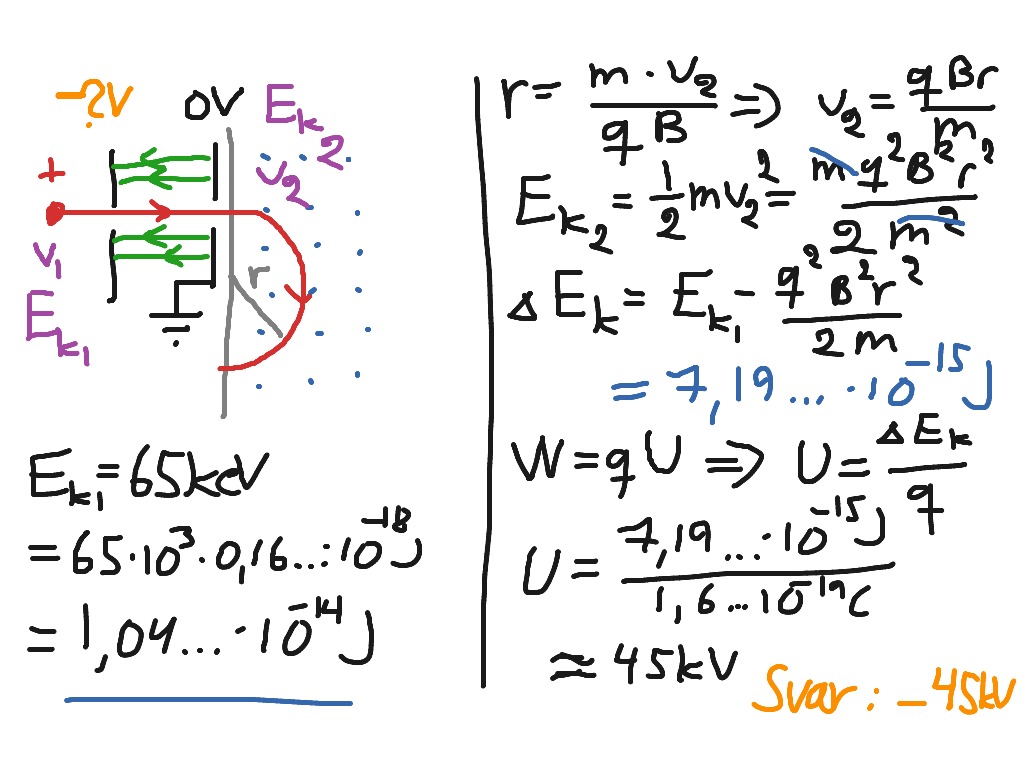 -?V 0V E_k2
+ v_2
v_1 r
E_k1
E_k1 = 65 keV
= 65·10^3 · 0,16...·10^-18 J
= 1,04... ·10^-14 J
r = (m · v_2)/(q B) ⇒ v_2 = (q B r)/m
E_k2 = 1/2 m v_2^2 = (m q^2 B^2 r^2)/(2 m^2)
Δ E_k = E_k1 - (q^2 B^2 r^2)/(2 m)
= 7,19... ·10^-15 J
W = q U ⇒ U = (Δ E_k)/q
U = (7,19...·10^-15 J)/(1,6...10^-19 C)
≈ 45 kV
Svar: -45kV